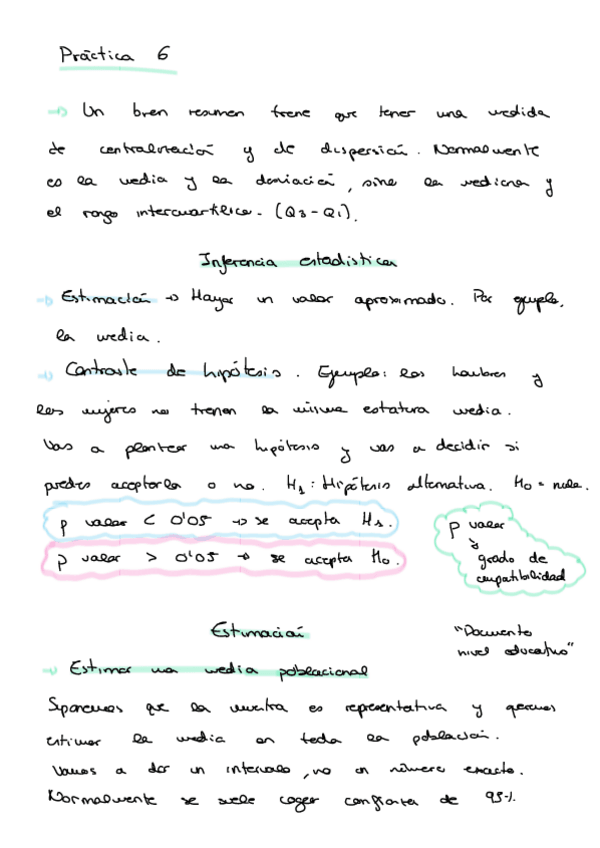 Práctica 6
→ Un buen resumen tiene que tener una medida
de centralización y de dispersión. Normalmente
es la media y la desviación, sino la mediana y
el rango intercuartílico. (Q3 - Q1).
Inferencia estadística
→ Estimación → Hayar un valor aproximado. Por ejemplo,
la media.
→ Contraste de hipótesis. Ejemplo: los hombres y
las mujeres no tienen la misma estatura media.
Vas a plantear una hipótesis y vas a decidir si
puedes aceptarla o no. H1: Hipótesis alternativa. H0 = nula.
p valor < 0'05 → se acepta H1.
p valor > 0'05 → se acepta H0.
p valor
↓
grado de
compatibilidad
Estimación
"Documento
nivel educativo"
→ Estimar una media poblacional
Suponemos que la muestra es representativa y queremos
estimar la media en toda la población.
Vamos a dar un intervalo, no un número exacto.
Normalmente se suele coger confianza de 95%.